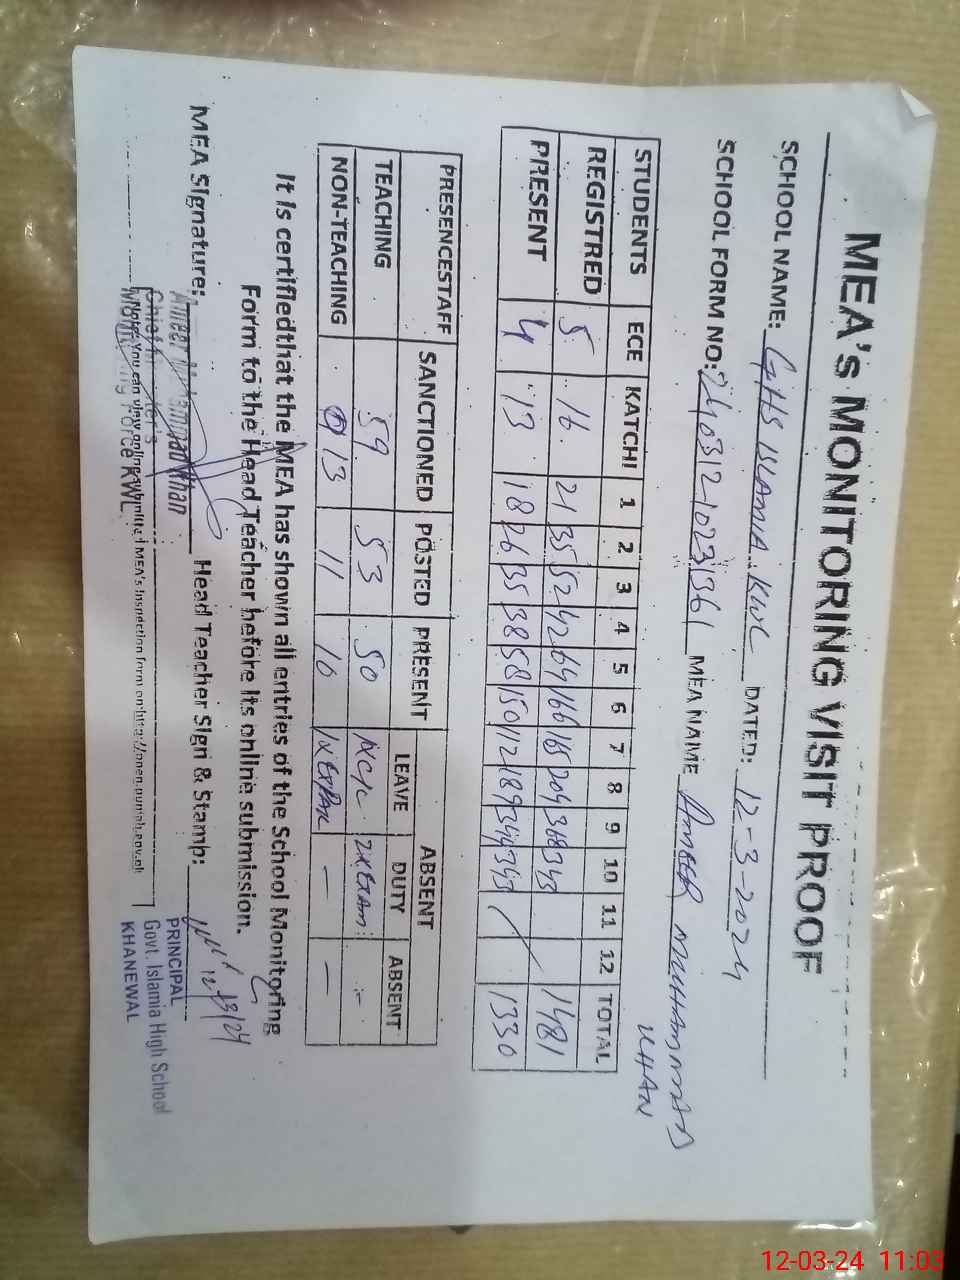 MEA's MONITORING VISIT PROOF
SCHOOL NAME: GHS ISLAMIA KWL DATED: 12-3-2024
SCHOOL FORM NO: MEA NAME AMEER MUHAMMAD
KHAN
STUDENTS ECE KATCHI 1 2 3 4 5 6 7 8 9 10 11 12 TOTAL
REGISTRED 5 16 21 35 52 42 64 166 165 204 368 343 1481
PRESENT 4 13 18 26 35 38 58 150 112 189 344 343 1330
PRESENCESTAFF SANCTIONED POSTED PRESENT ABSENT
LEAVE DUTY ABSENT
TEACHING 59 53 50 1XC/L 2XEXAM -
NON-TEACHING 13 11 10 - -
It is certifiedthat the MEA has shown all entries of the School Monitoring
Form to the Head Teacher before its online submission.
MEA Signature: Head Teacher Sign & Stamp:
12/3/24
Ameer Muhammad Khan
Monitoring Force KWL
Note: You can view online submitted MEA's Inspection form on http://open.punjab.gov.pk
PRINCIPAL
Govt. Islamia High School
KHANEWAL
12-03-24 11:03